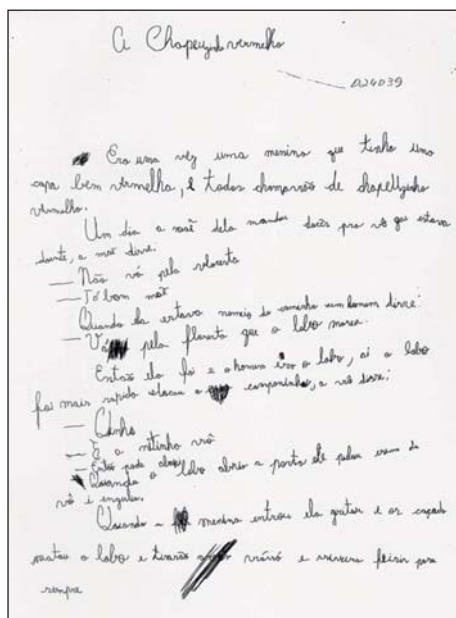 A Chapeuzinho vermelho
D24039
Era uma vez uma menina que tinha uma
capa bem vermelha, e todos chamavão de chapeuzinho
vermelho.
Um dia a maê dela mandou doces pra vó que estava
doente, a maê disse:
— Não vá pela floresta
— Tá bom maê
Quando ela estava nomeio do caminho um homem disse:
— Vá pela floresta que o lobo
Então ela foi e o homem era o lobo, aí o lobo
foi mais rapido a campaninha, a vó disse:
—
— É a netinha vó
— Então pode
Quando o lobo abriu a porta ele pulou em sima da
vó e
Quando a menina entrou ela gritou e os
matou o lobo e tirarão vóvó e viveram felizis para
sempre